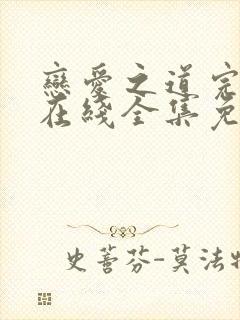 戀愛之道完
在綫全集免
史萫芬-莫法特